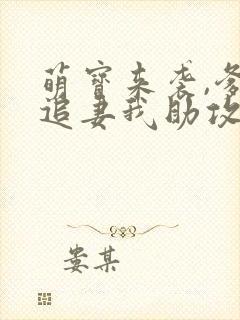 萌宝来袭,爹
追妻我助攻
娄某